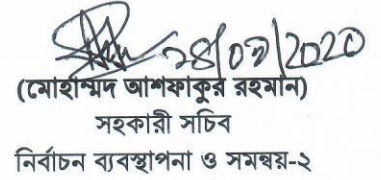 ২৪/০৯/২০২০
(মোহাম্মদ আশফাকুর রহমান)
সহকারী সচিব
নির্বাচন ব্যবস্থাপনা ও সমন্বয়-২